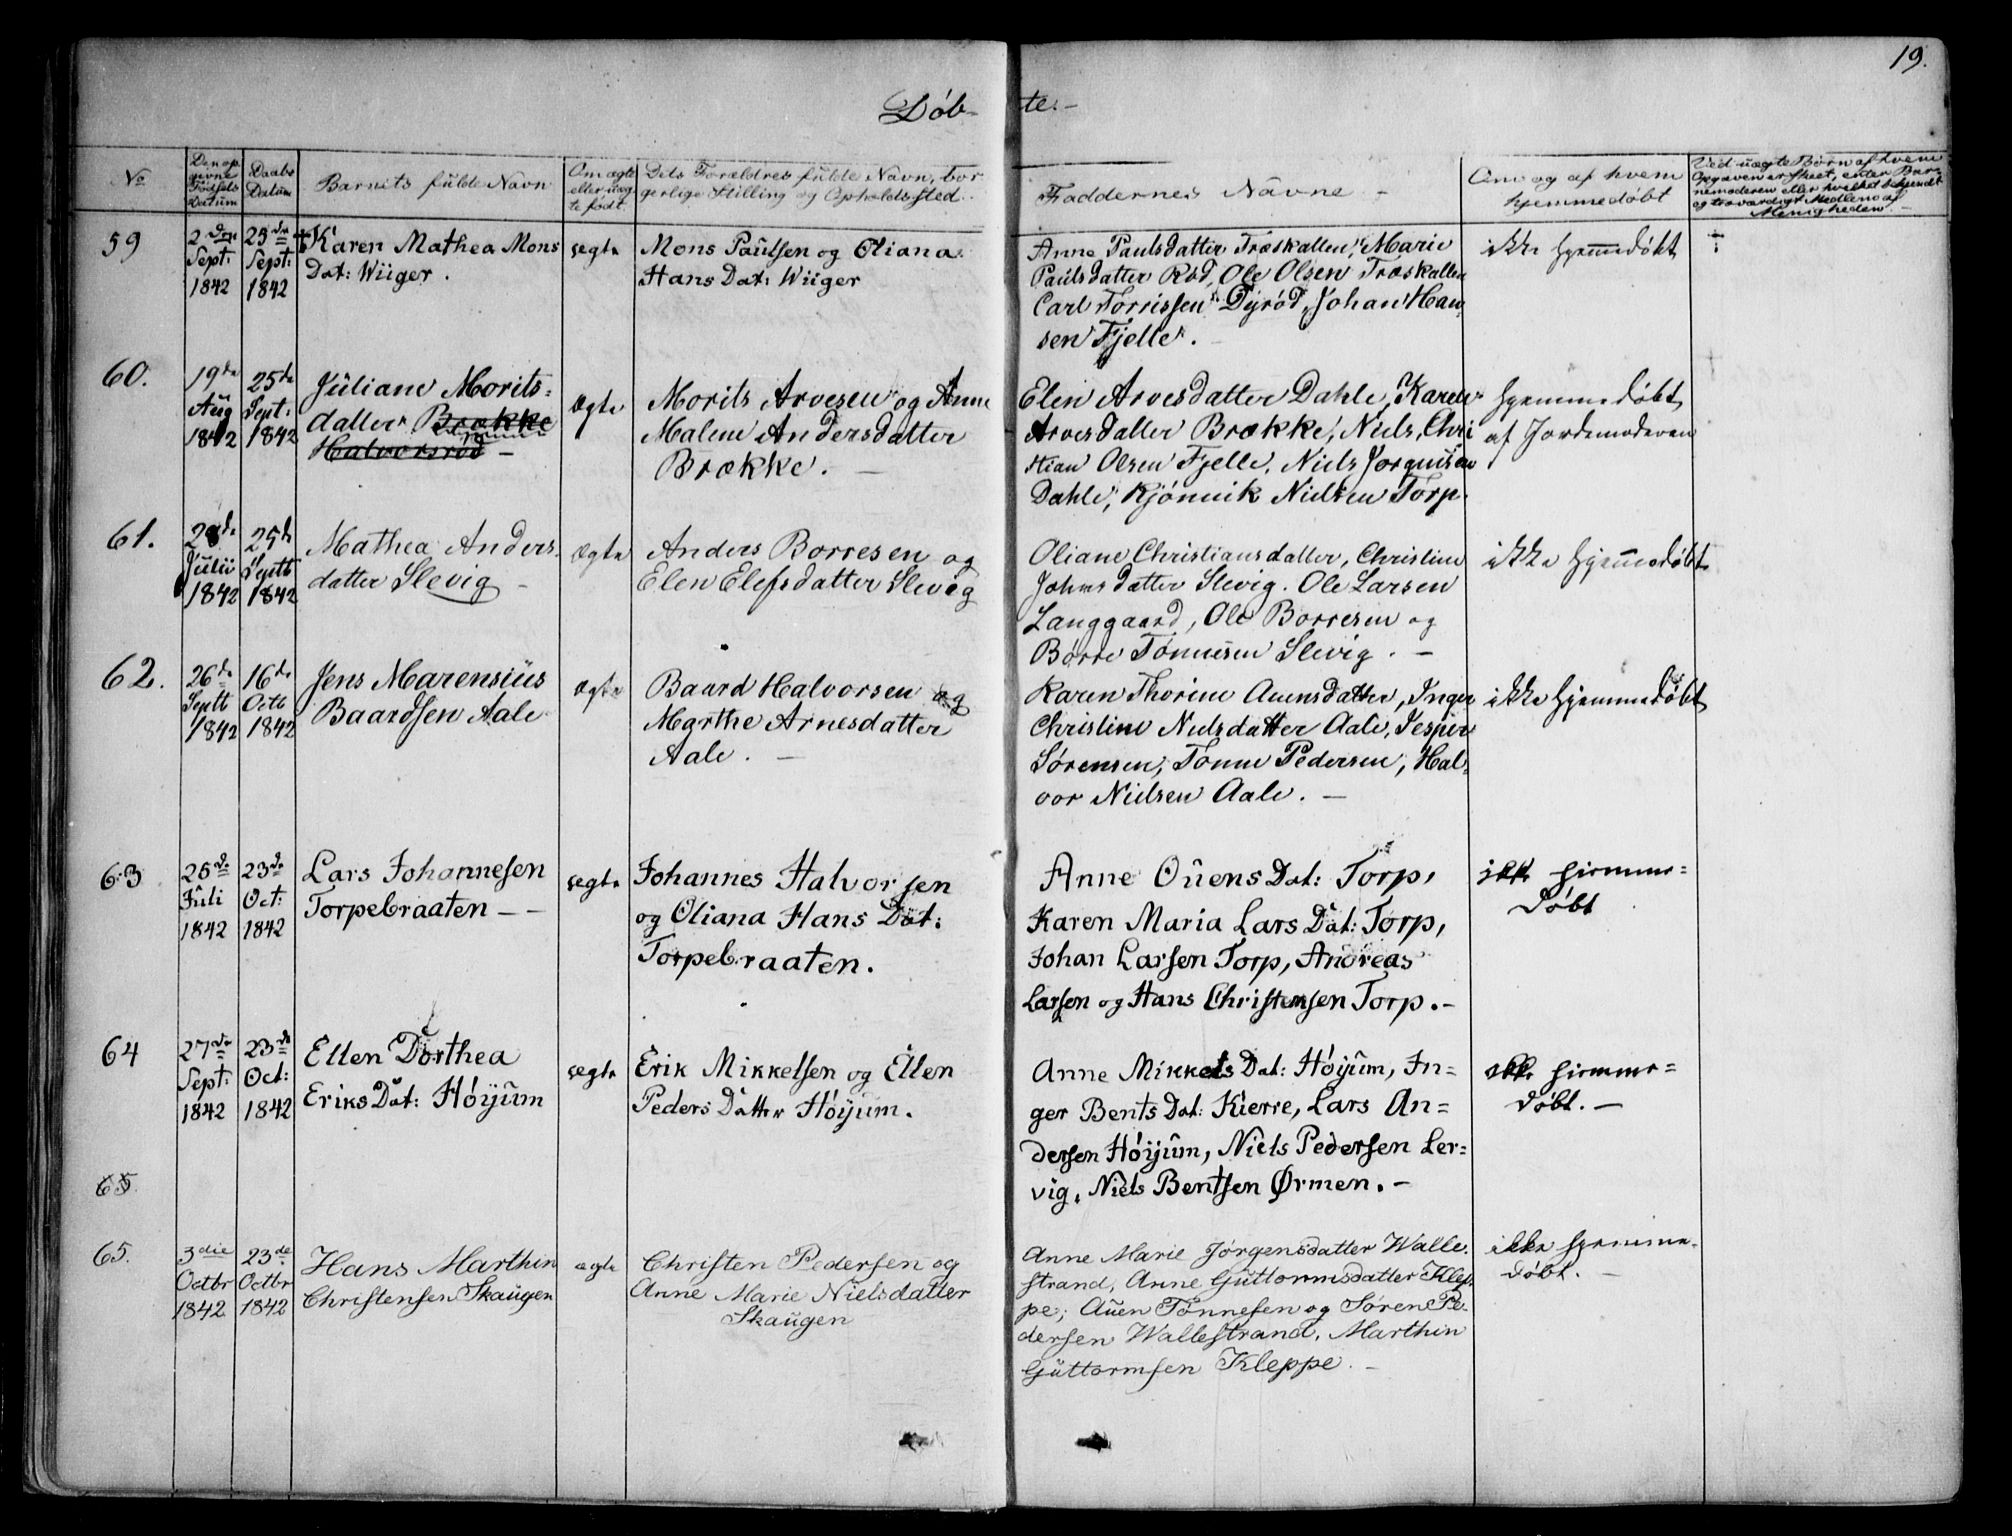 19.
Döb-
te.-
No
Den op
givne
Födsels
Datum
Daabs
Datum
Barnets fulde Navn
Om ægte
eller uæg
te födt.
Dets Forældres fulde Navn, bor
gerlige Stilling og Opholdssted.
Faddernes Navne -
Om og af hvem
hjemmedöbt
Ved uægte Börn af hvem
Opgaven er skeet, enten Bar-
nemoderen eller hvilket bekjendt
og troværdigt Medlem af
Menigheden.
59
2den
Sept:
1842
25de
Sept:
1842
Karen Mathea Mons
Dat: Wiiger.
ægte
Mons Paulsen og Oliana
Hans Dat: Wiiger
Anne Paulsdatter Træskallen, Marie
Paulsdatter Röd, Ole Olsen Træskallen
Carl Torrissen Dyröd, Johan Han
sen Fjelle.
ikke hjemmedöbt
60.
19de
Aug
1842
25de
Sept:
1842
Juliane Morits-
datter Brække
Halvorsröd -
ægte
Morits Arvesen og Anne
Malene Andersdatter
Brække. -
Elen Arvesdatter Dahle, Karen
Arvesdatter Brække, Niels Chri
stian Olsen Fjelle, Niels Jörgensen
Dahle, Kjönnik Nielsen Torp.
hjemmedöbt
af Jordemoderen
61.
28de
Julii
1842
25de
Septb
1842
Mathea Anders
datter Slevig -
ægte
Anders Borresen og
Elen Elefsdatter Slevig
Oliane Christiansdatter, Christine
Johnsdatter Slevig. Ole Larsen
Langgaard, Ole Borresen og
Börre Tönnesen Slevig. -
ikke hjemmedöbt
62.
26de
Septb
1842
16de
Octb
1842
Jens Marensius
Baardsen Aale
ægte
Baard Halvorsen og
Marthe Arnesdatter
Aale. -
Karen Thorine Auensdatter, Inger
Christine Nielsdatter Aale, Jesper
Sörensen, Tönne Pedersen, Hal-
vor Nielsen Aale. -
ikke hjemmedöbt
63
25de
Juli
1842
23de
Oct:
1842
Lars Johannesen
Torpebraaten - -
ægte
Johannes Halvorsen
og Oliana Hans Dat:
Torpebraaten.
Anne Ouens Dat: Torp,
Karen Maria Lars Dat: Torp,
Johan Larsen Torp, Andreas
Larsen og Hans Christensen Torp. -
ikke hiemme=
döbt
64
27de
Sept:
1842
23de
Oct:
1842
Ellen Dorthea
Eriks Dat: Höyum
ægte
Erik Mikkelsen og Ellen
Peders Datter Höyum.
Anne Mikkels Dat: Höyum, In=
ger Bents Dat: Kierre, Lars An=
dersen Höyum, Niels Pedersen Ler=
vig, Niels Bentsen Ørmen. -
ikke hiemme=
döbt. -
65.
65.
3die
Octbr
1842
23de
Octbr
1842
Hans Marthin
Christensen Skaugen
ægte
Christen Pedersen og
Anne Marie Nielsdatter
Skaugen
Anne Marie Jörgensdatter Walle-
strand, Anne Guttormsdatter Klep-
pe; Auen Tönnesen og Sören Pe-
dersen Wallestrand, Marthin
Guttormsen Kleppe. -
ikke hjemme-
döbt. -